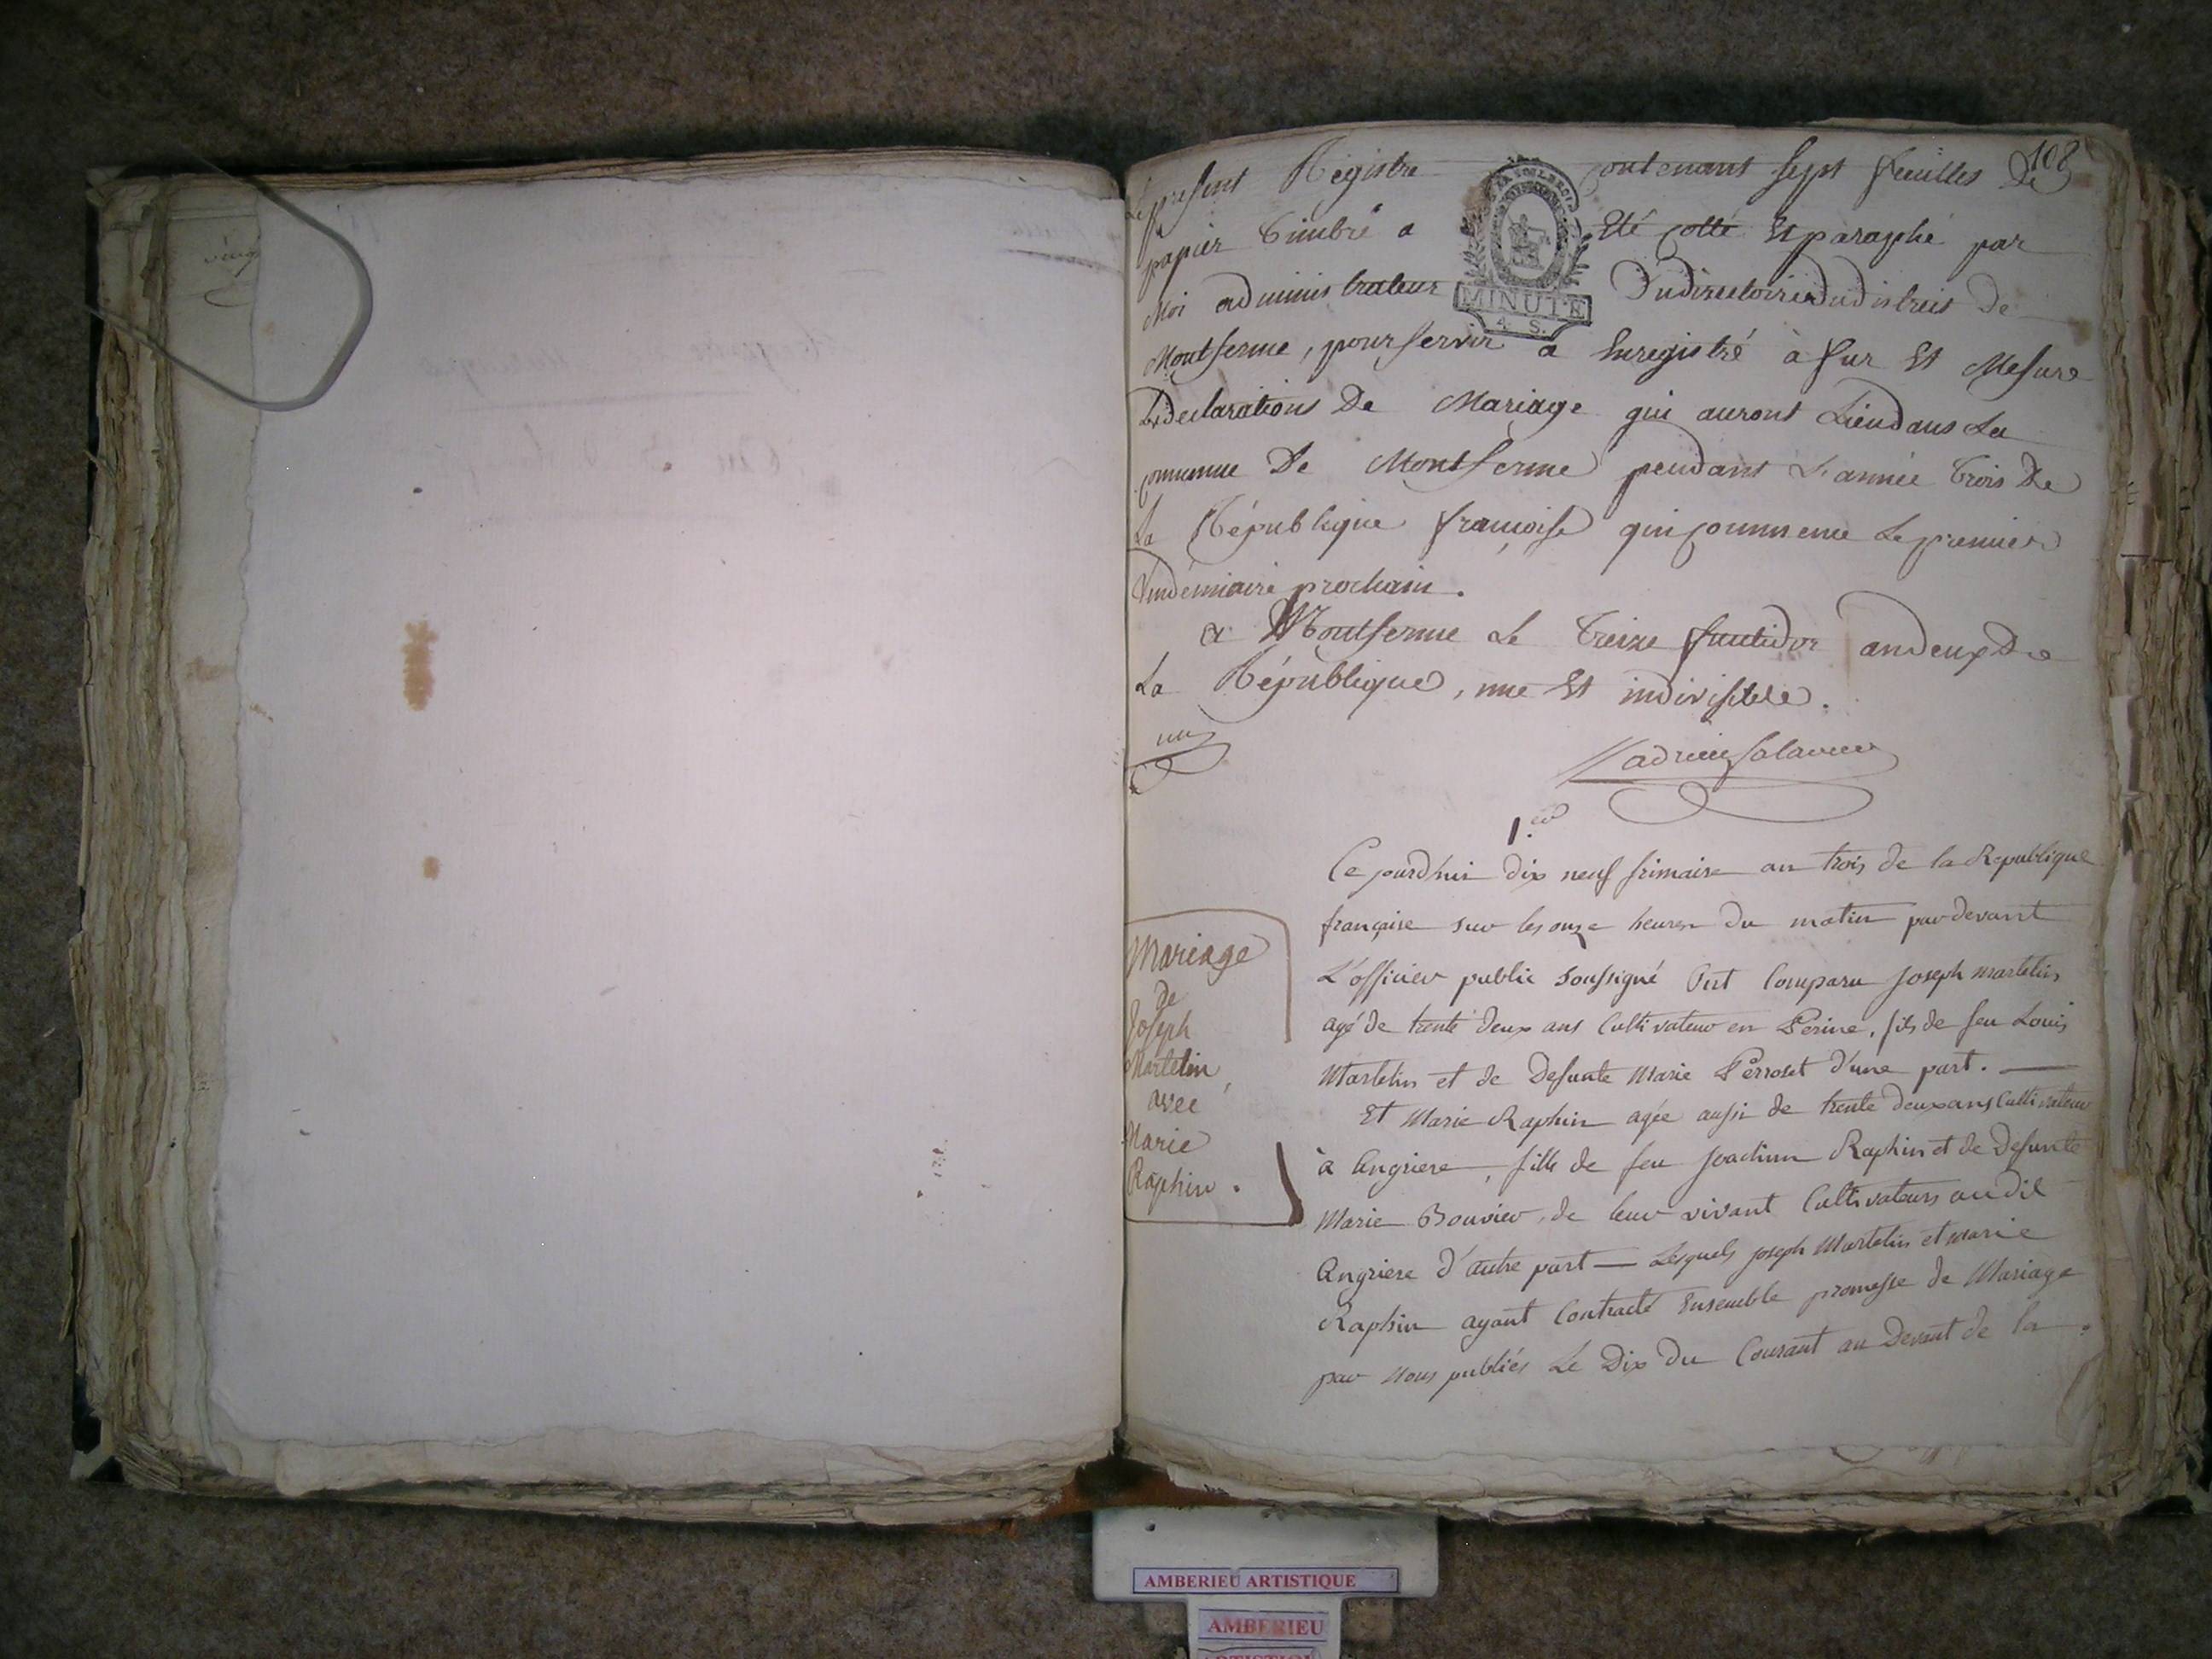 108
Le present Régistre contenant sept feuilles De
papier Timbré a Eté cotté Et paraphé par
Moi administrateur Dudirectoire Dudistrict de
Montferme, pour servir a Enregistré à fur Et Mesure
Les declarations De Mariage qui auront Lieu dans La
commune De Montferme pendant L'année trois De
La République françoise qui commence Le premier
Vindémiaire prochain.
a Montferme Le treize fructidor an deux De
La République, une Et indivisible.
MINUTE
4. S.
1.er
Ce jourd'hui dix neuf frimaire an trois de la Republique
française sur les onze heures du matin par devant
L'officier public soussigné Ont Comparu Joseph martelin
agé de trente deux ans Cultivateur en Perine, fils de feu Louis
Martelin et de Defunte Marie Perroset d'une part.
Et Marie Raphin agée aussi de trente deux ans Cultivateur
à Angriere, fille de feu Joachim Raphin et de Defunte
Marie Bouvier, de leur vivant Cultivateurs au dit
Angriere d'autre part — Lesquels joseph Martelin et marie
Raphin ayant Contracté Ensemble promesse de Mariage
par Nous publiés Le Dix Du Courant au Devant de la
Mariage
de
Joseph
Martelin,
avec
Marie
Raphin.
AMBERIEU ARTISTIQUE
AMBERIEU
ARTISTIQUE